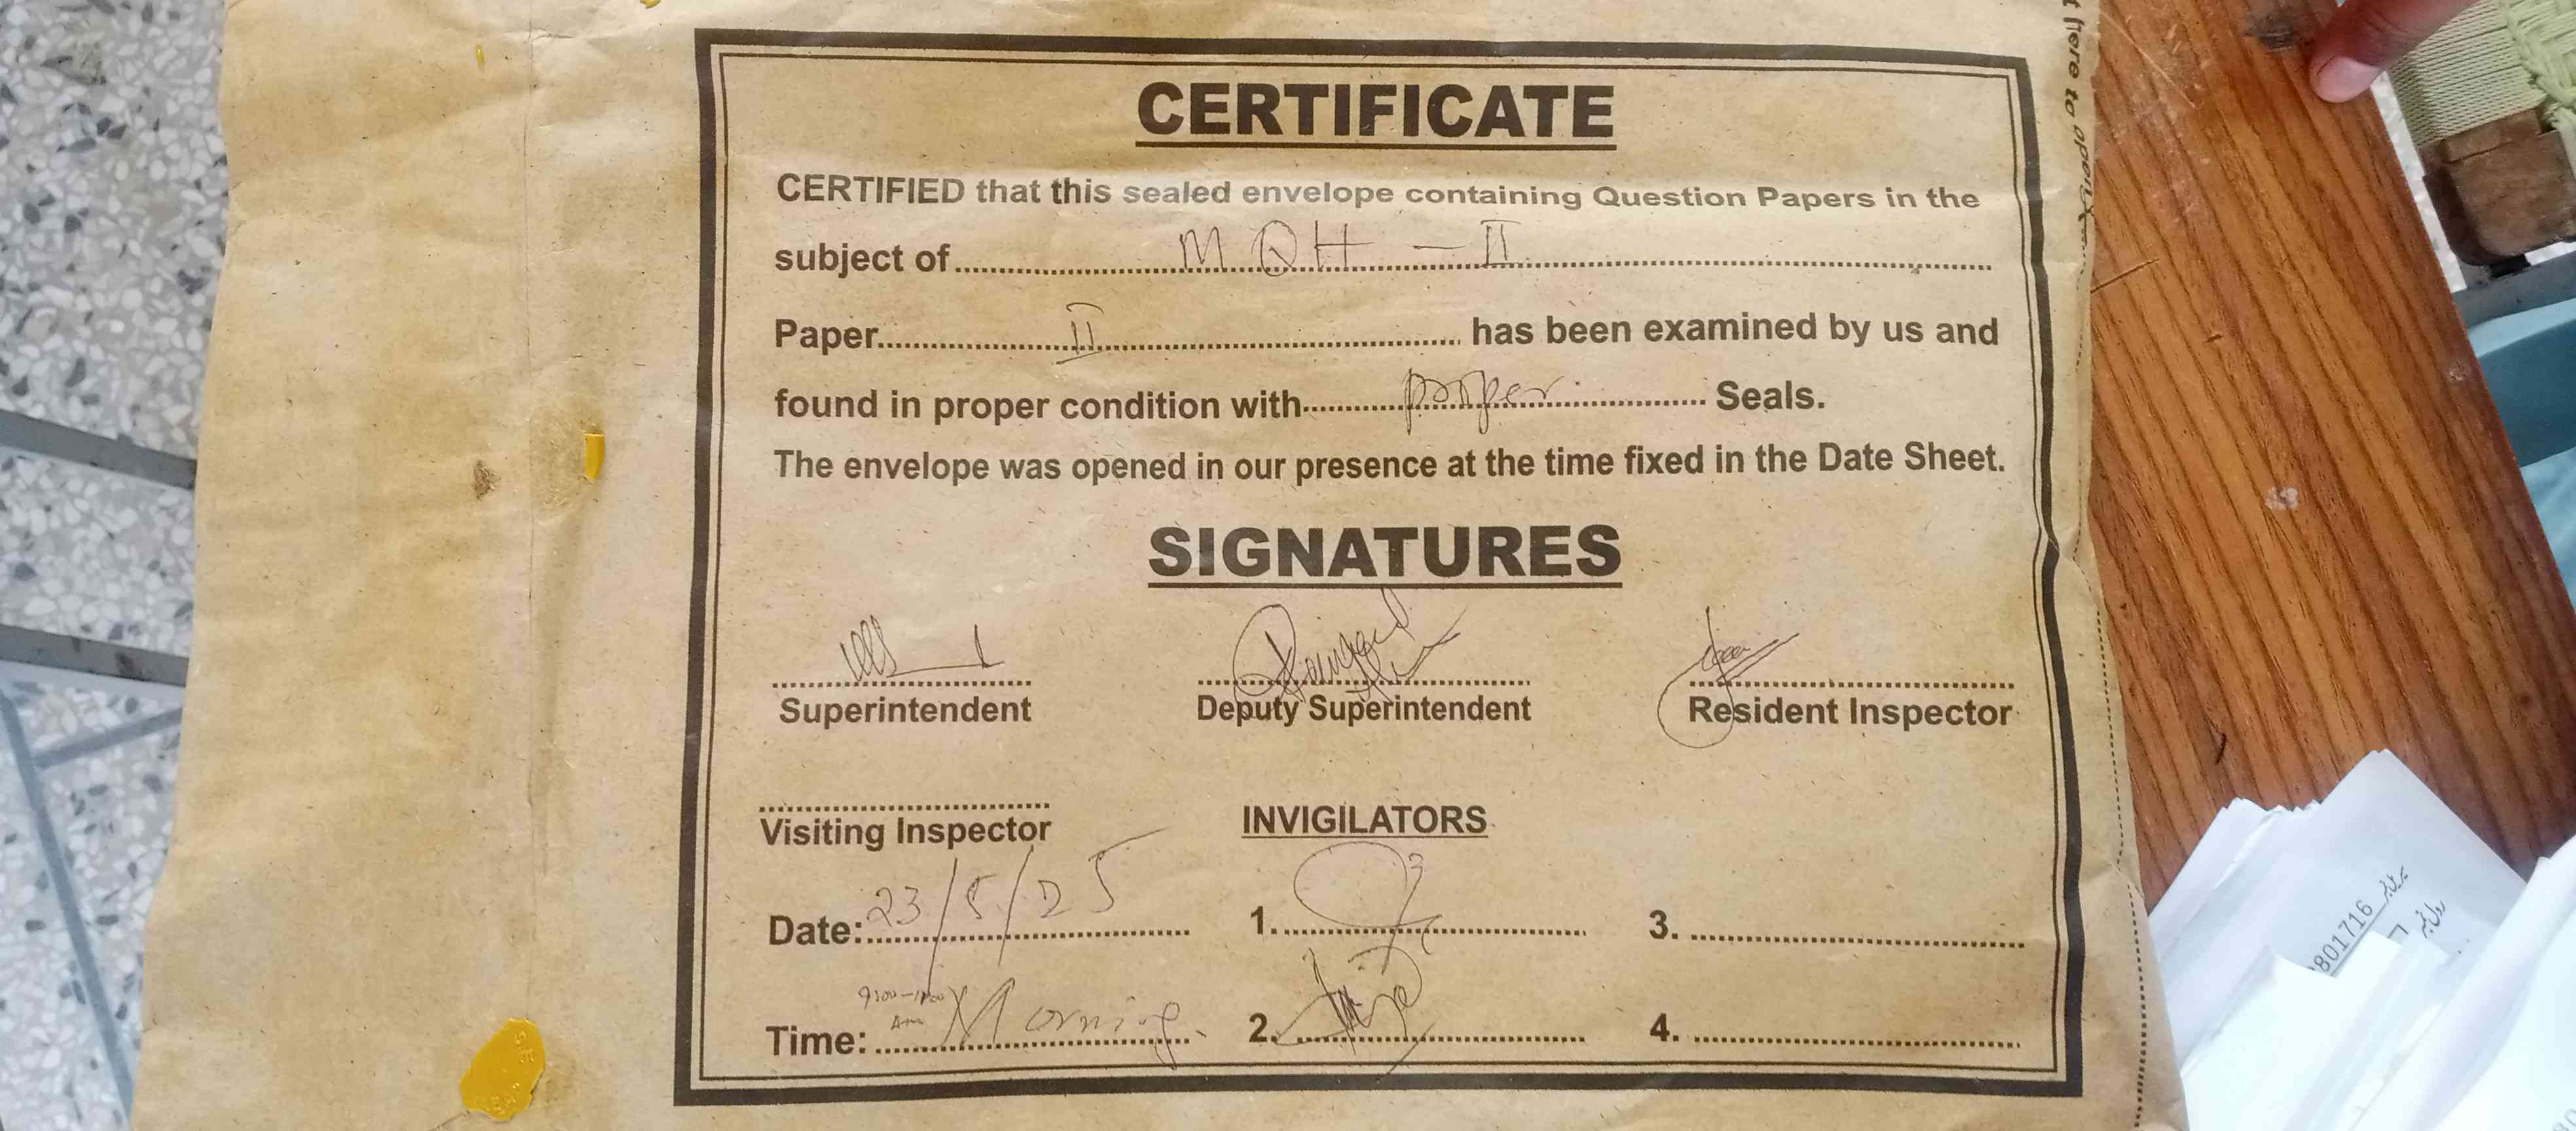 CERTIFICATE
CERTIFIED that this sealed envelope containing Question Papers in the
subject of MQH - II
Paper II has been examined by us and
found in proper condition with proper Seals.
The envelope was opened in our presence at the time fixed in the Date Sheet.
SIGNATURES
Superintendent Deputy Superintendent Resident Inspector
Visiting Inspector INVIGILATORS
Date: 23/5/25 1. 3.
Time: Morning 2. 4.
here to open
801716
رول نمبر